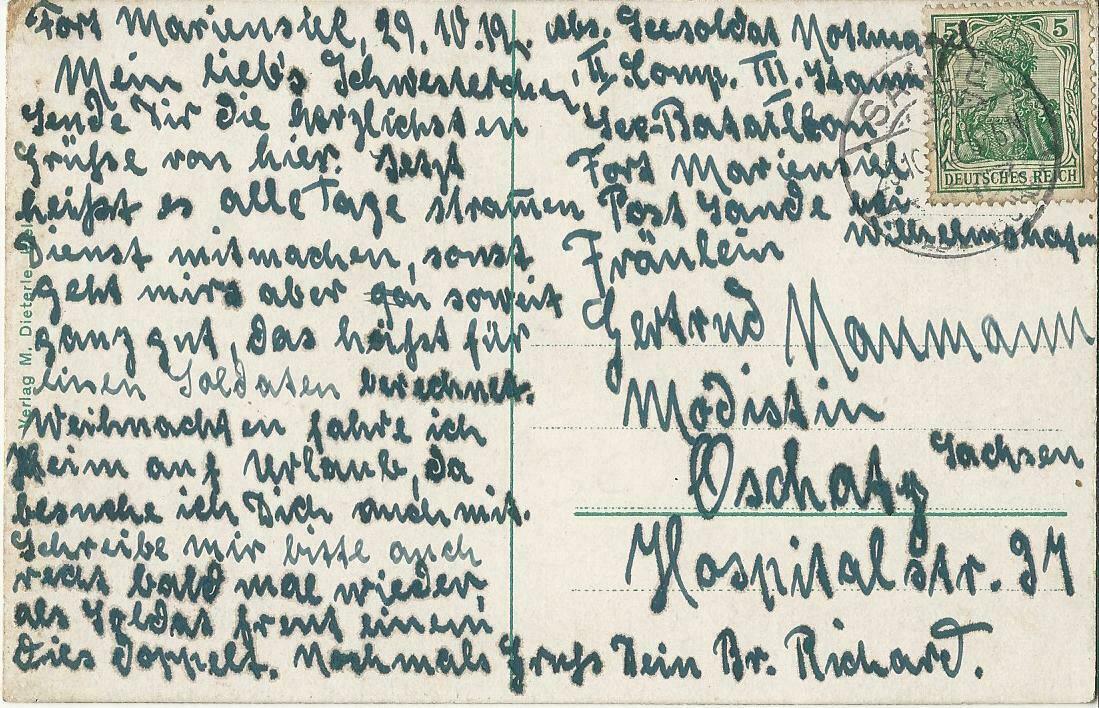 Fort Mariensiel, 29.10.12
Mein lieb's Schwesterchen,
Sende Dir die herzlichsten
Grüsse von hier. Jetzt
heisst es alle Tage stram̄en
Dienst mitmachen, sonst
geht mirs aber soweit
ganz gut, das heisst für
einen Soldaten berechnet.
Weihnachten fahre ich
Heim auf Urlaub, da
besuche ich Dich auch mit.
Schreibe mir bitte auch
recht bald mal wieder,
als Soldat freut einem
dies doppelt. Nochmals Gruss Dein Br. Richard.
abs. Seesoldat
II. Comp. III. Stamm
See-Bataillon
Fort Mariensiel
Post Sande bei
Wilhelmshafen
Fräulein
Gertrud Naumann
Modistin
Oschatz Sachsen
Hospitalstr.
5 5
DEUTSCHES REICH
Verlag M. Dieterle